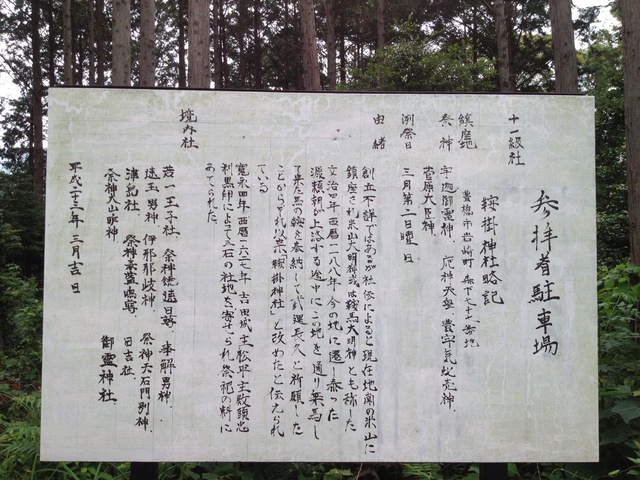 参拝者駐車場
鞍掛神社略記
十一級社
鎮座地 豊橋市岩崎町森下七十二番地
祭神 宇迦御霊神、応神天皇、豊宇気比売神、
菅原大臣神
例祭日 三月第二日曜日
由緒
創立不詳ではあるが社伝によると現在地南の米山に
鎮座され米山大明神或は鞍馬大明神とも称した
文治四年西暦一一八八年今の地に遷し奉った
源頼朝が上洛する途中にこの地を通り乗馬し
て来た馬の鞍を奉納して武運長久を祈願した
ことからそれ以来「鞍掛神社」と改めたと伝えられ
ている
寛永四年西暦一六二七年吉田城主松平主殿頭忠
利黒印によって三石の社地を寄せられ祭祀の料に
あてられた
境内社
若一王子社、祭神 速玉男神 伊邪那岐神 事解男神、
津島社、祭神 素盞嗚尊、日吉社、
祭神 大山咋神 祭神 天石門別神
御霊神社
平成二十二年三月吉日